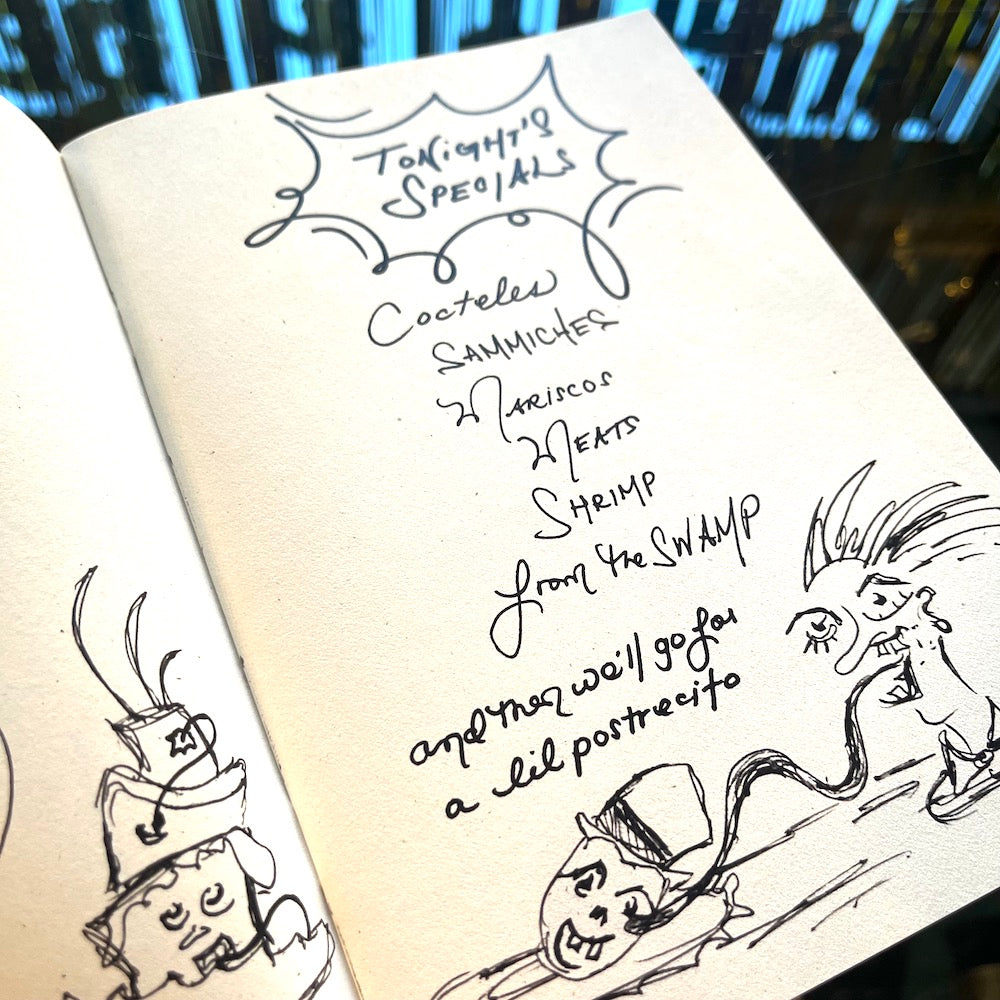 TONIGHT'S
SPECIALS
Cocteles
SAMMICHES
MARISCOS
MEATS
SHRIMP
from the SWAMP
and then we'll go for
a lil postrecito